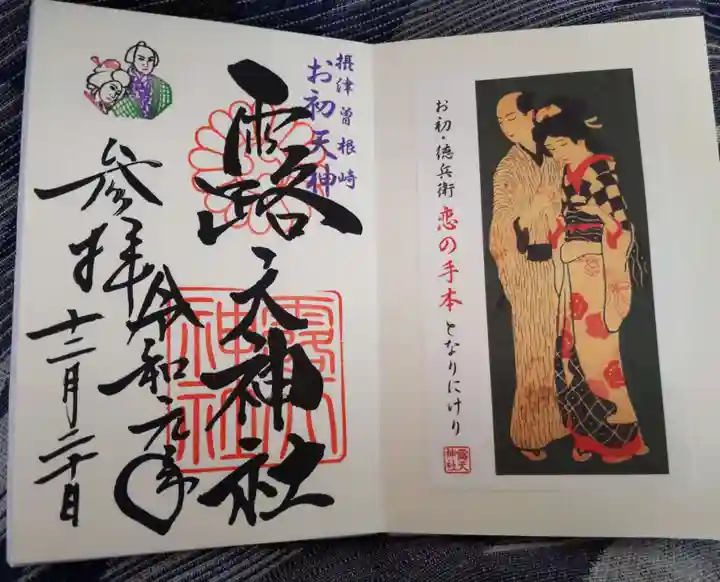 摂津曽根崎
お初天神
露天神社
参拝
令和元年
十二月二十日
お初・徳兵衛 恋の手本 となりにけり
露天神社
露天神社